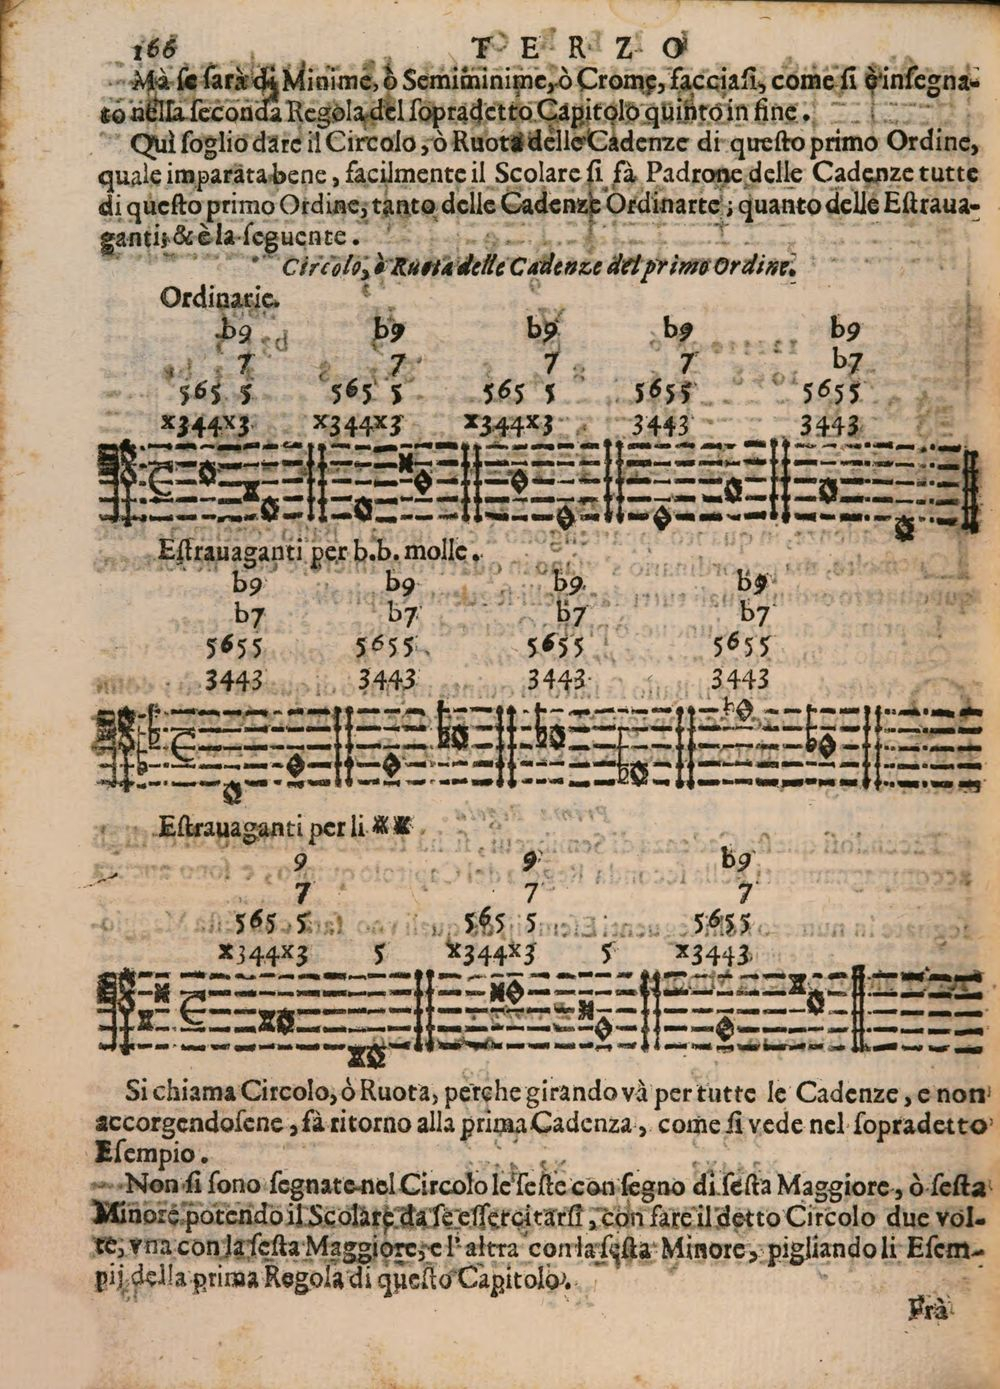 166 TERZO
Mà ſe ſarà di Minime, ò Semiminime, ò Crome, facciaſi, come ſi è inſegna-
to nella ſeconda Regola del ſopradetto Capitolo quinto in fine.
Quì ſoglio dare il Circolo, ò Ruota delle Cadenze di queſto primo Ordine,
quale imparata bene, facilmente il Scolare ſi fà Padrone delle Cadenze tutte
di queſto primo Ordine, tanto delle Cadenze Ordinarte; quanto delle Eſtraua-
ganti; & è la ſeguente.
Circolo, ò Ruota delle Cadenze del primo Ordine.
Ordinarie.
b9 b9 b9 b9 b9
7 7 7 7 b7
565 5 565 5 565 5 5655 5655
x344x3 x344x3 x344x3 3443 3443
Eſtrauaganti per b.b. molle.
b9 b9 b9 b9
b7 b7 b7 b7
5655 5655 5655 5655
3443 3443 3443 3443
Eſtrauaganti per li ※ ※
9 9 b9
7 7 7
565 5 565 5 5655
x344x3 5 x344x3 5 x3443
Si chiama Circolo, ò Ruota, perche girando và per tutte le Cadenze, e non
accorgendoſene, fà ritorno alla prima Cadenza, come ſi vede nel ſopradetto
Eſempio.
Non ſi ſono ſegnate nel Circolo le ſeſte con ſegno di ſeſta Maggiore, ò ſeſta
Minore potendo il Scolare da ſe eſſercitarſi, con fare il detto Circolo due vol-
te, vna con la ſeſta Maggiore, e l'altra con la ſeſta Minore, pigliando li Eſem-
pij della prima Regola di queſto Capitolo.
Frà